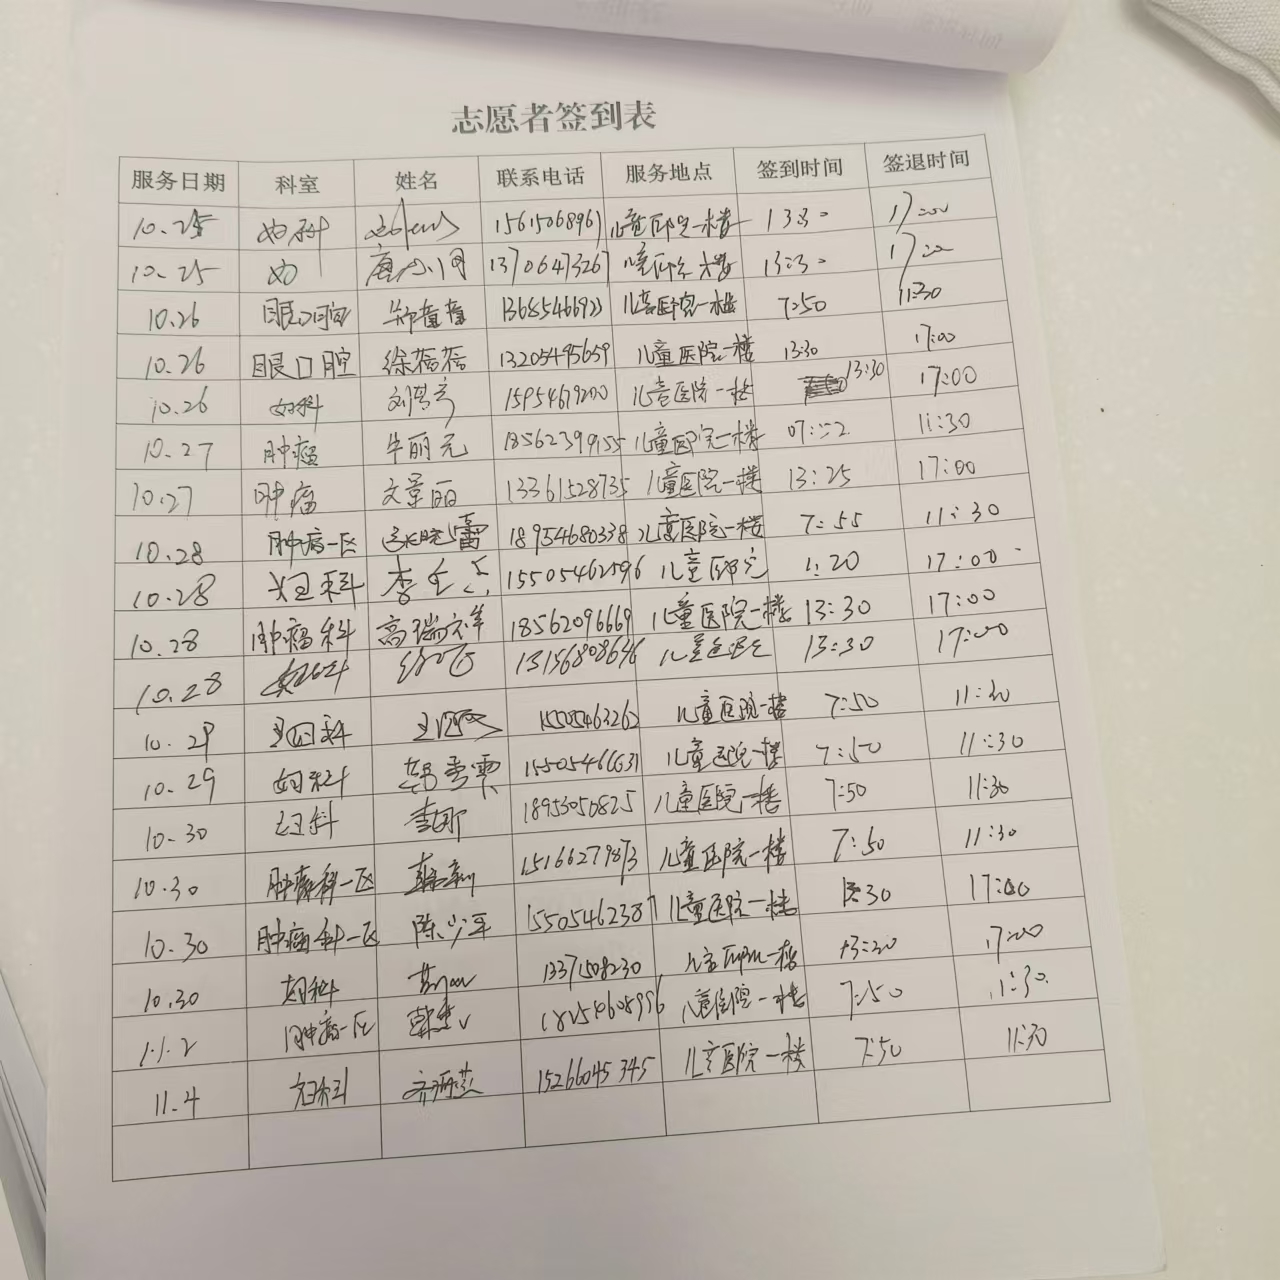 志愿者签到表
服务日期 科室 姓名 联系电话 服务地点 签到时间 签退时间
10.25 妇科 15615068961 儿童医院一楼 13:30 17:00
10.25 妇 13706473267 儿童医院一楼 13:30 17:00
10.26 眼口腔 郑童童 儿童医院一楼 7:50 11:30
10.26 眼口腔 徐蓓蓓 13205495659 儿童医院一楼 13:30 17:00
10.26 妇科 15954679200 儿童医院一楼 13:30 17:00
10.27 肿瘤 牛丽元 18562399155 儿童医院一楼 07:52 11:30
10.27 肿瘤 文章丽 13361528735 儿童医院一楼 13:25 17:00
10.28 肿瘤一区 18954680338 儿童医院一楼 7:55 11:30
10.28 妇科 李 15505462596 儿童医院 1:20 17:00
10.28 肿瘤科 高瑞祥 18562096669 儿童医院一楼 13:30 17:00
10.28 13156808646 13:30 17:00
10.29 妇科 15505463262 儿童医院一楼 7:50 11:30
10.29 妇科 15505466631 儿童医院一楼 7:50 11:30
10.30 妇科 李娜 18953050825 儿童医院一楼 7:50 11:30
10.30 肿瘤科一区 15166279873 儿童医院一楼 7:50 11:30
10.30 肿瘤科一区 陈少军 15505462387 儿童医院一楼 13:30 17:00
10.30 妇科 儿童医院一楼 13:30 17:00
11.2 肿瘤一区 18254608996 儿童医院一楼 7:50 11:30
11.4 妇科 齐丽燕 15266045345 儿童医院一楼 7:50 11:30